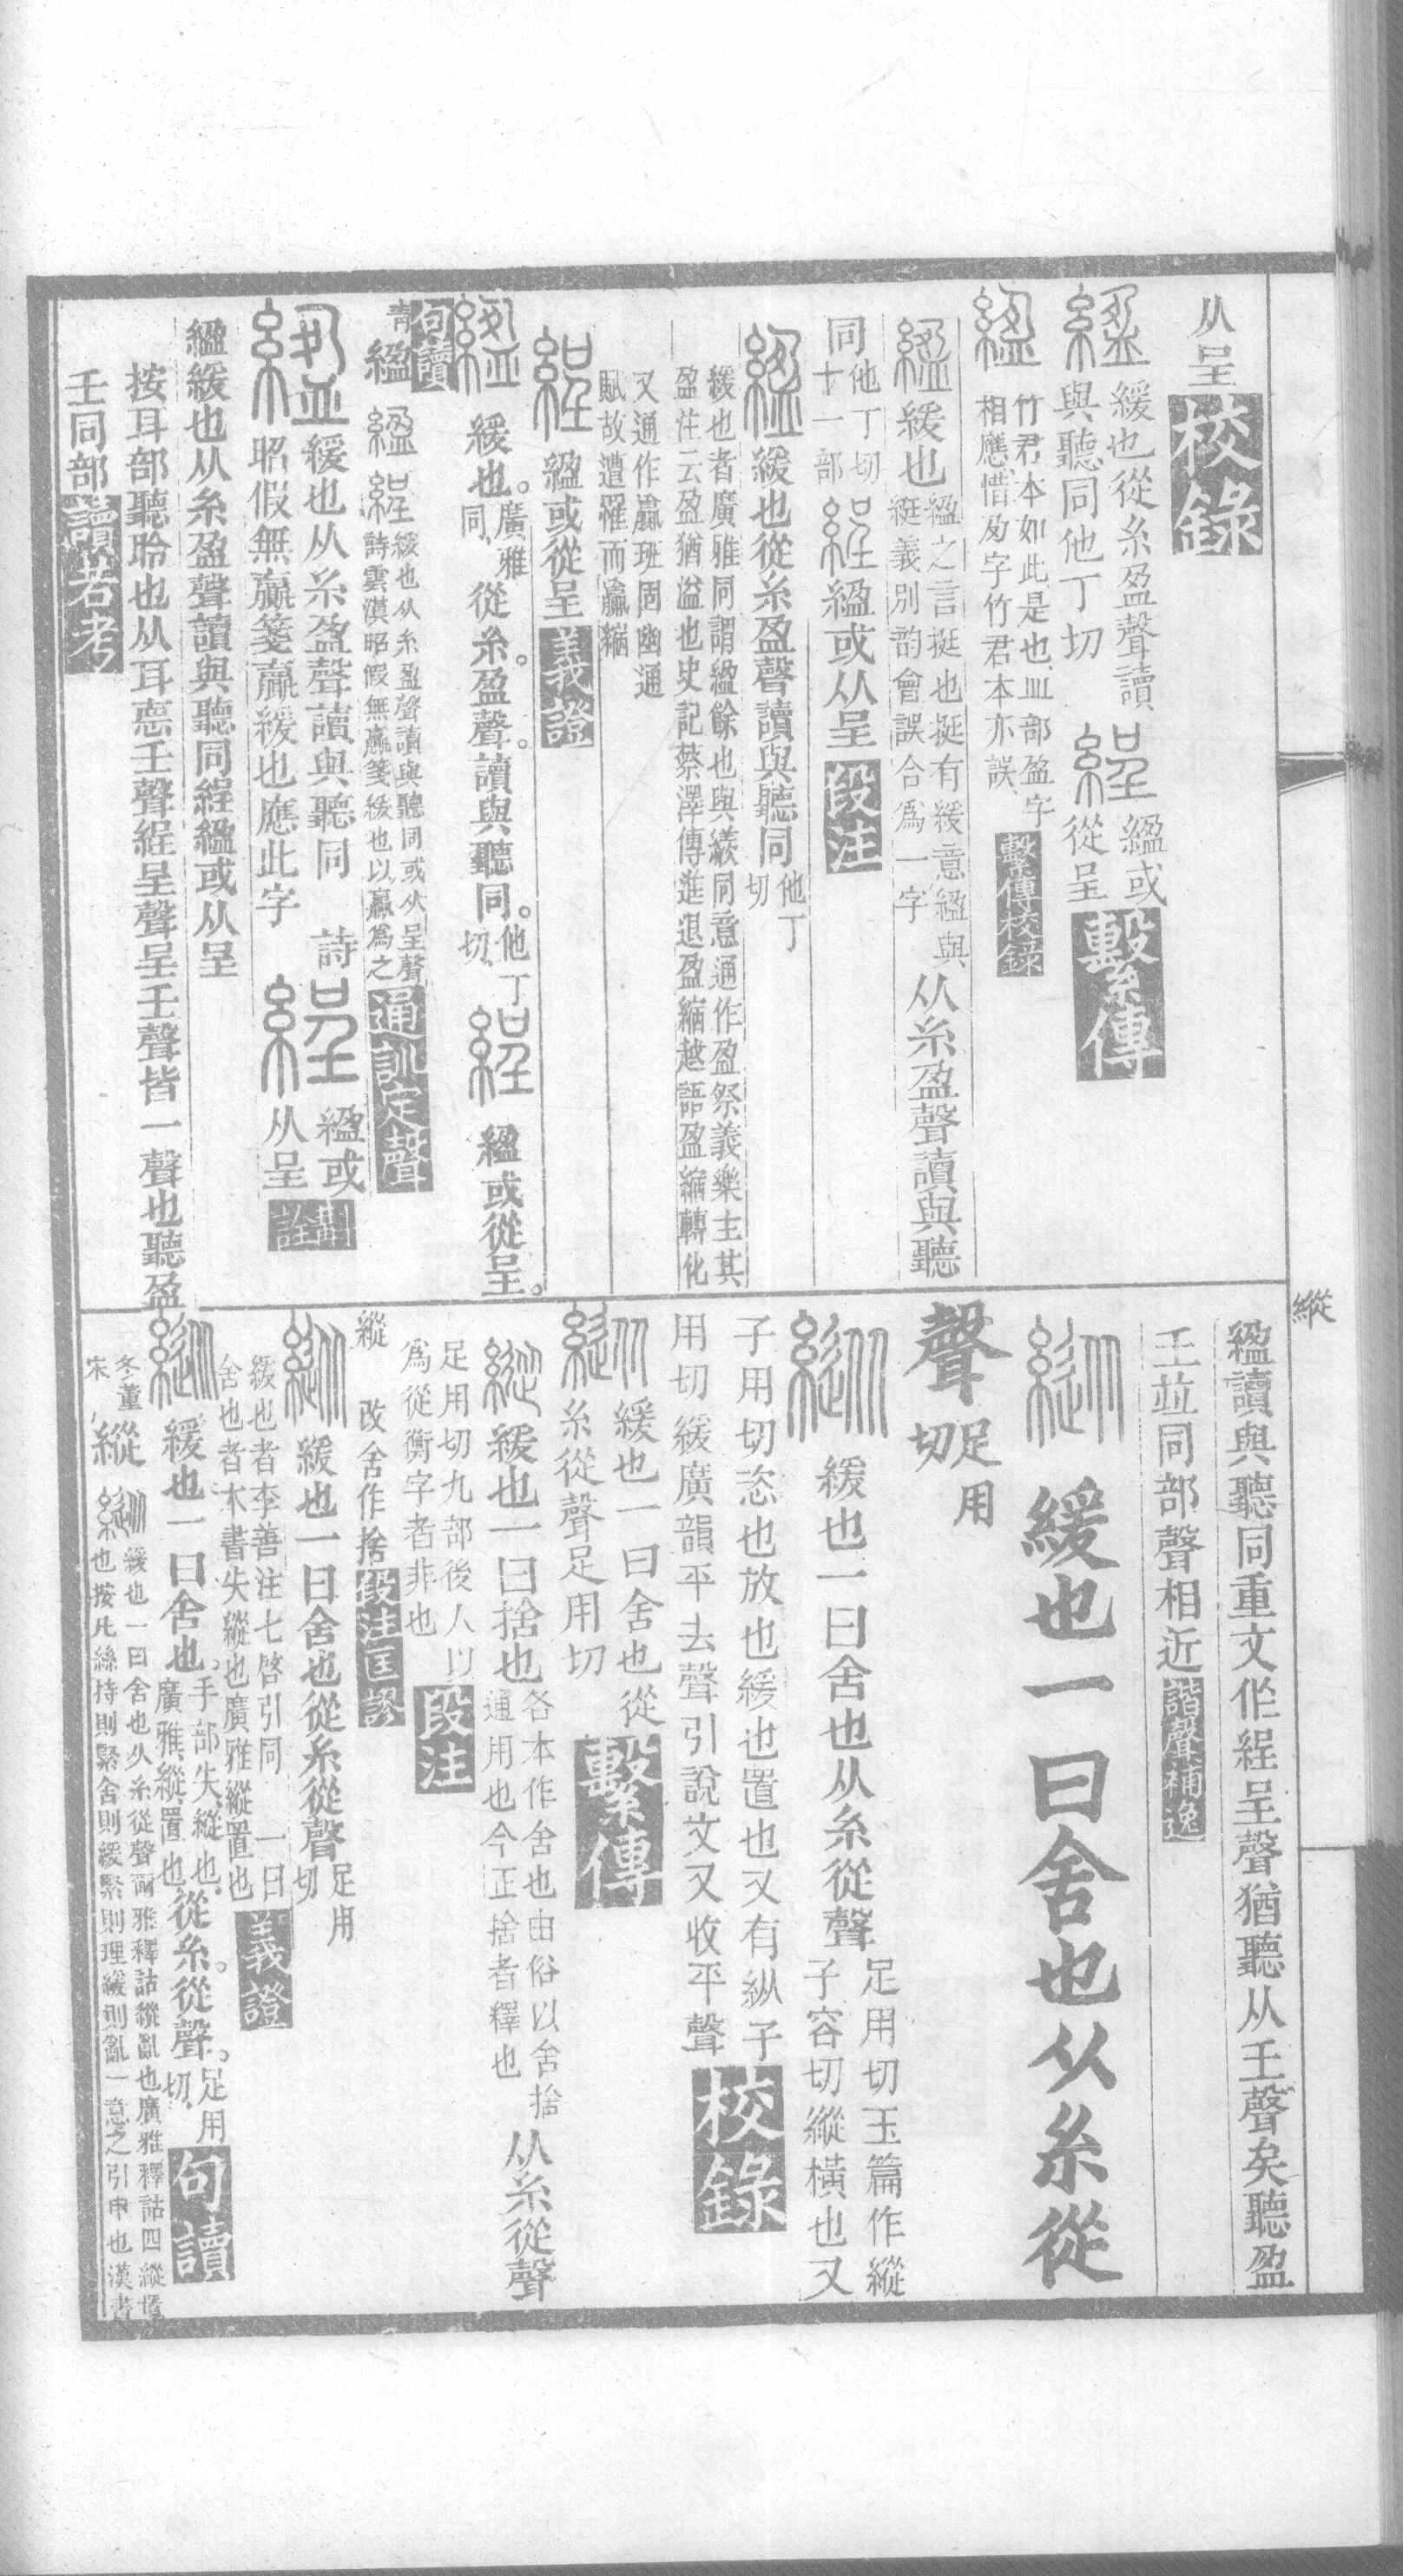 从呈校錄
緩也從糸盈聲讀
與聽同他丁切
縕或
從呈
繫傳
竹君本如此是也皿部盈字
相應惜及字竹君本亦誤
繫傳校錄
緩也
縕之言挺也挺有緩意縕與
綎義別韵會誤合爲一字
从糸盈聲讀與聽
同
他丁切
十一部
縕或从呈段注
緩也從糸盈聲讀與聽同
他丁
切
緩也者廣雅同謂縕餘也與緩同意通作盈祭義樂主其
盈注云盈猶溢也史記蔡澤傳進退盈縮越語盈縮轉化
又通作贏班固幽通
賦故遭罹而贏縮
縕或從呈義證
緩也。
廣雅
同、
從糸。盈聲。讀與聽同。
他丁
切、
縕或從呈。
句讀
青
緩也从糸盈聲讀與聽同或从呈聲
詩雲漢昭假無贏箋緩也以贏爲之
通訓定聲
緩也从糸盈聲讀與聽同 詩
昭假無贏箋贏緩也應此字
縕或
从呈
斠詮
緩也从糸盈聲讀與聽同綎縕或从呈
按耳部聽聆也从耳悳壬聲綎呈聲呈壬聲皆一聲也聽盈
壬同部讀若考
縱
讀與聽同重文作綎呈聲猶聽从王聲矣聽盈
王竝同部聲相近諧聲補逸
緩也一曰舍也从糸從
聲
足用
切
緩也一曰舍也从糸從聲
足用切玉篇作縱
子容切縱橫也又
子用切恣也放也緩也置也又有緃子
用切緩廣韻平去聲引說文又收平聲校錄
緩也一曰舍也從
糸從聲足用切
繫傳
緩也一曰捨也
各本作舍也由俗以舍捨
通用也今正捨者釋也
从糸從聲
足用切九部後人以
爲從衡字者非也
段注
縱 改舍作捨段注匡謬
緩也一曰舍也從糸從聲
足用
切
緩也者李善注七啓引同 一曰
舍也者本書失縱也廣雅縱置也
義證
緩也一曰舍也。
手部失、縱也、
廣雅、縱置也、
從糸。從聲。
足用
切、
句讀
冬董
宋
縱
緩也一曰舍也从糸從聲爾雅釋詁縱亂也廣雅釋詁四縱置
也按凡絲持則緊舍則緩緊則理緩則亂一意之引申也漢書